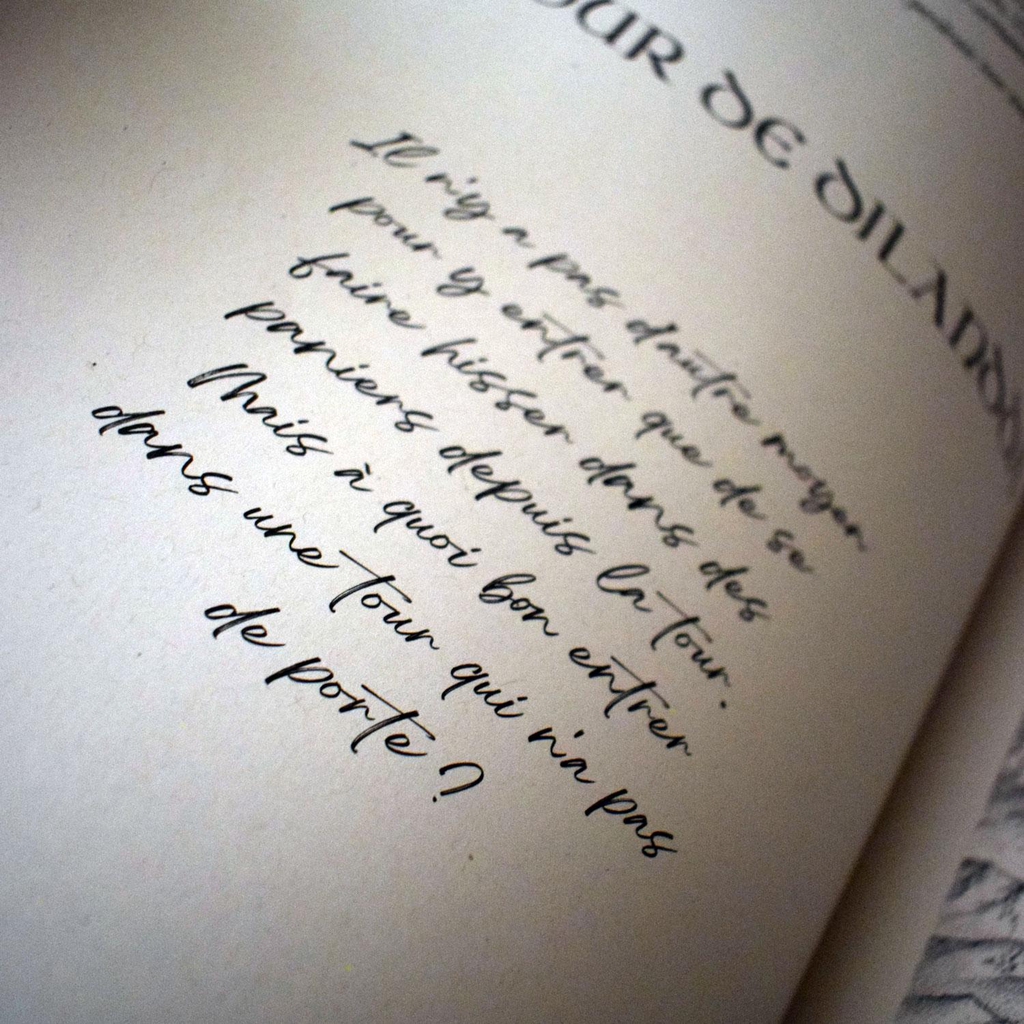 DE
Il n'y a pas d'autre moyen
pour y entrer que de se
faire hisser dans des
paniers depuis la tour.
Mais à quoi bon entrer
dans une tour qui n'a pas
de porte ?